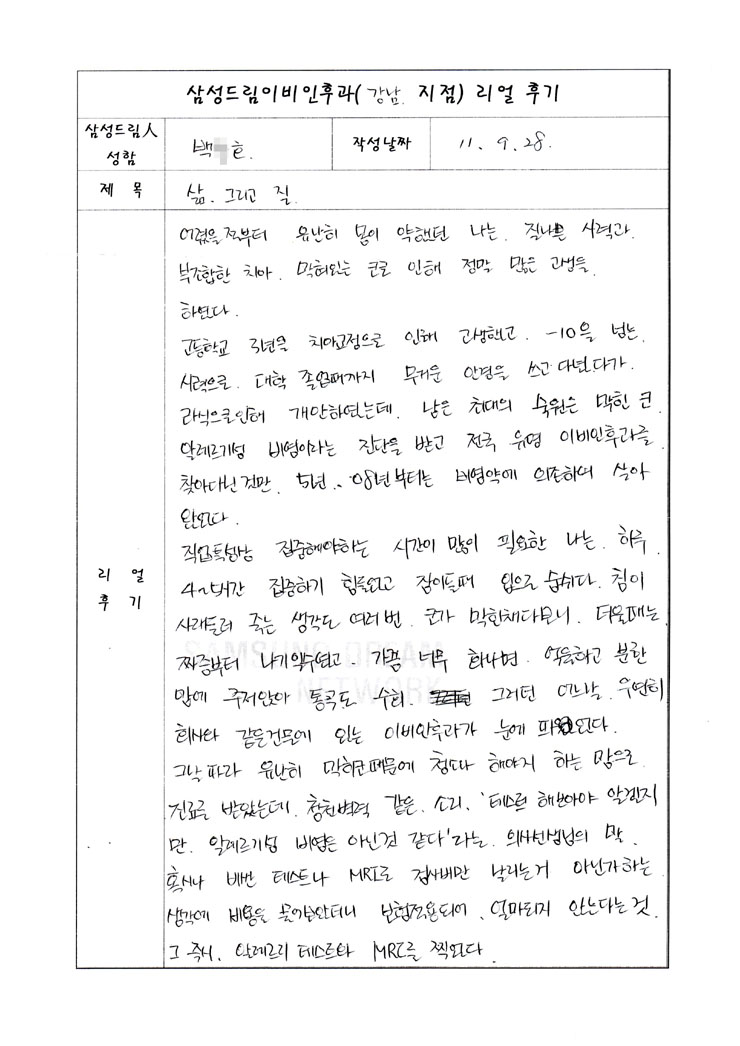 삼성드림이비인후과( 강남 지점) 리얼 후기
삼성드림人 성함
백 호.
작성날짜
11. 9. 28.
제 목
삶. 그리고 질.
리 얼 후 기
어렸을 적부터 유난히 몸이 약했던 나는. 질나쁜 시력과.
부조합한 치아. 막혀있는 코로 인해 정말 많은 고생을.
하였다.
고등학교 3년을 치아교정으로 인해 고생했고. -10을 넘는.
시력으로. 대학 졸업때까지 무거운 안경을 쓰고 다녔다가.
라식으로인해 개안하였는데. 남은 최대의 숙원은 막힌 코.
알레르기성 비염이라는 진단을 받고 전국 유명 이비인후과를
찾아다닌것만. 5년.. 08년부터는 비염약에 의존하여 살아
왔었다.
직업특성상 집중해야하는 시간이 많이 필요한 나는. 하루.
4~5시간 집중하기 힘들었고 잠이들때 입으로 숨쉬다. 침이
사래들려 죽는 생각도 여러번. 코가 막힌채다보니. 더울때는
짜증부터 나기일수였고. 가끔 너무 화나면. 억울하고 분한
맘에 주저앉아 통곡도 수회. 그러던 어느날. 우연히
회사와 같은건물에 있는 이비인후과가 눈에 띄었다.
그날따라 유난히 막힌코때문에 청소나 해야지 하는 맘으로.
진료를 받았는데. 창천벽력 같은. 소리. '테스트 해보아야 알겠지
만. 알레르기성 비염은 아닌것 같다'라는. 의사선생님의 말.
혹시나 비싼 테스트나 MRI로 검사비만 날리는거 아닌가하는
생각에 비용을 물어보았더니 보험적용되어. 얼마되지 않는다는것.
그 즉시. 알레르기 테스트와 MRI를 찍었다.
SAMSUNG DREAM
NETWORK